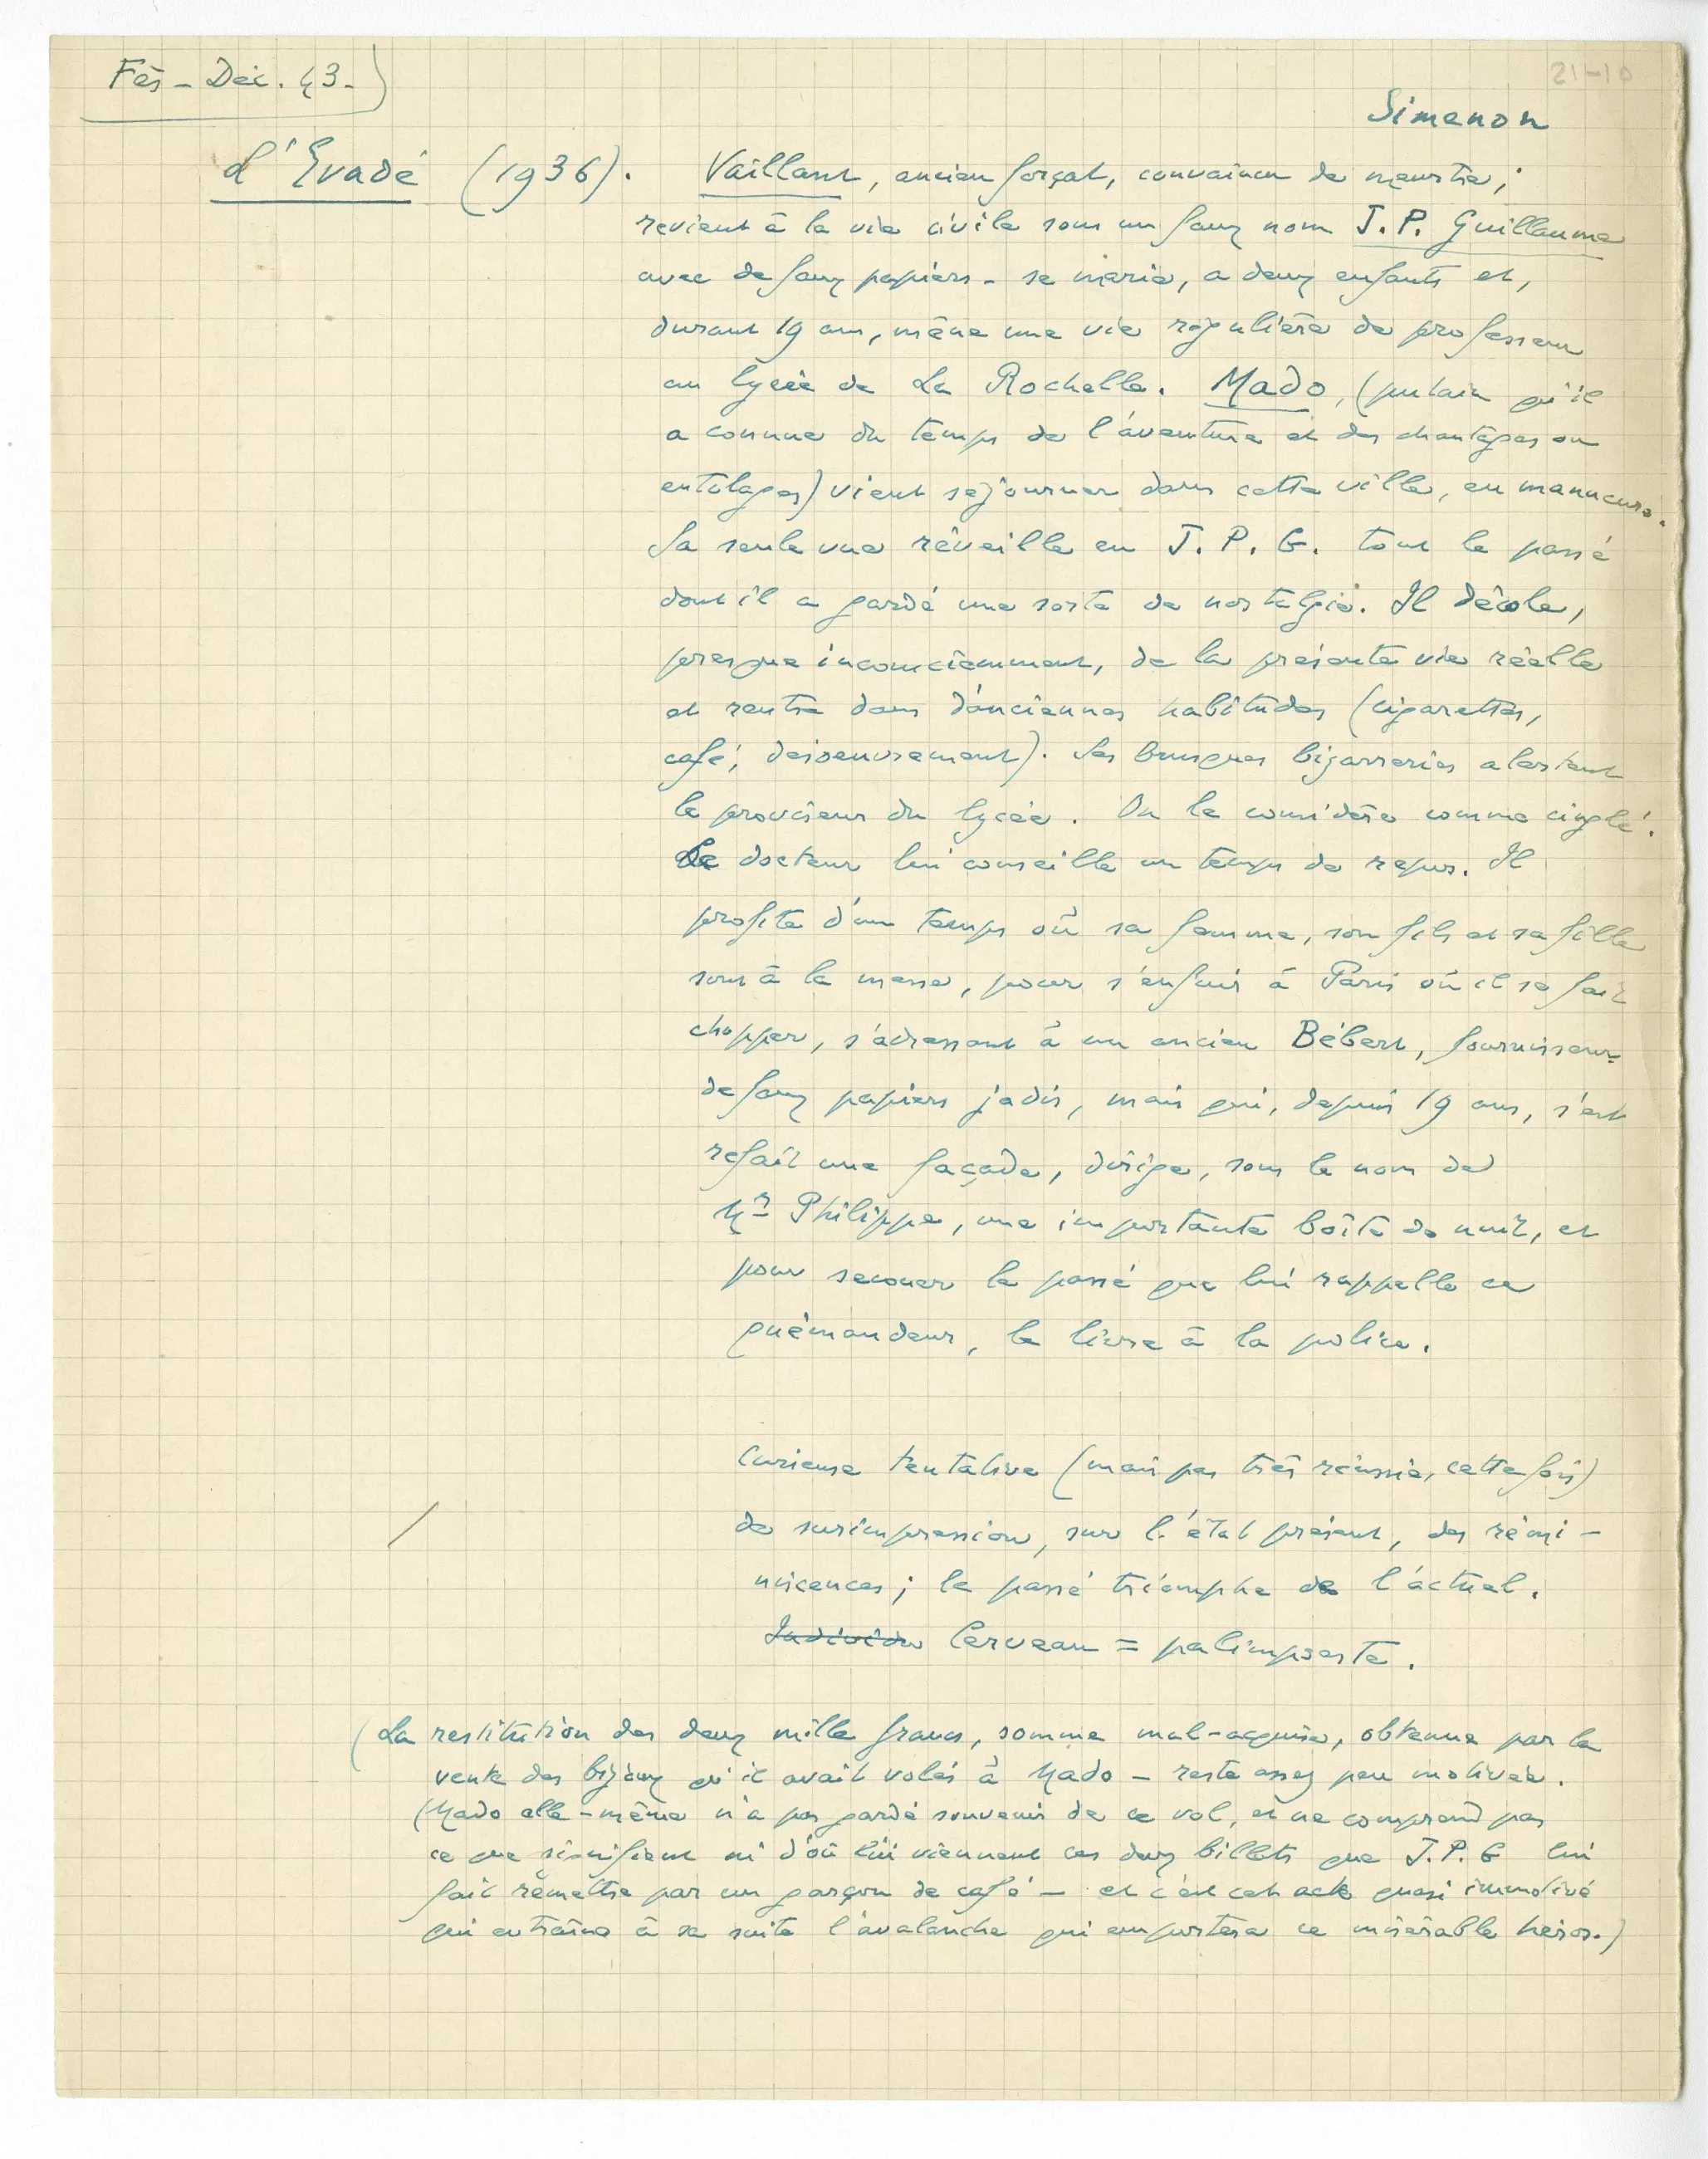 Fès - Déc. 43.
21-10
Simenon
L'Evadé (1936). Vaillant, ancien forçat, convaincu de meurtre,
revient à la vie civile sous un faux nom J. P. Guillaume
avec de faux papiers - se marie, a deux enfants et,
durant 19 ans, mène une vie régulière de professeur
au lycée de La Rochelle. Mado, (putain qu'il
a connue du temps de l'aventure et des chantages ou
entôlages) vient séjourner dans cette ville, en manucure.
Sa seule vue réveille en J. P. G. tout le passé
dont il a gardé une sorte de nostalgie. Il décole,
presque inconsciemment, de la présente vie réelle
et rentre dans d'anciennes habitudes (cigarettes,
café, désoeuvrement). Ses brusques bizarreries alertent
le proviseur du lycée. On le considère comme cinglé.
Le docteur lui conseille un temps de repos. Il
profite d'un temps où sa femme, son fils et sa fille
sont à la messe, pour s'enfuir à Paris où il se fait
chopper, s'adressant à un ancien Bébert, fournisseur
de faux papiers jadis, mais qui, depuis 19 ans, s'est
refait une façade, dirige, sous le nom de
Mr Philippe, une importante boîte de nuit, et
pour secouer le passé que lui rappelle ce
quémandeur, le livre à la police.
Curieuse tentative (mais pas très réussie, cette fois)
de surimpression, sur l'état présent, des rémi-
niscences ; le passé triomphe de l'actuel.
Individu Cerveau = palimpseste.
(La restitution des deux mille francs, somme mal-acquise, obtenue par la
vente des bijoux qu'il avait volés à Mado - reste assez peu motivée.
(Mado elle-même n'a pas gardé souvenir de ce vol, et ne comprend pas
ce que signifient ni d'où lui viennent ces deux billets que J. P. G lui
fait remettre par un garçon de café - et c'est cet acte quasi immotivé
qui entraîne à sa suite l'avalanche qui emportera ce misérable héros.)